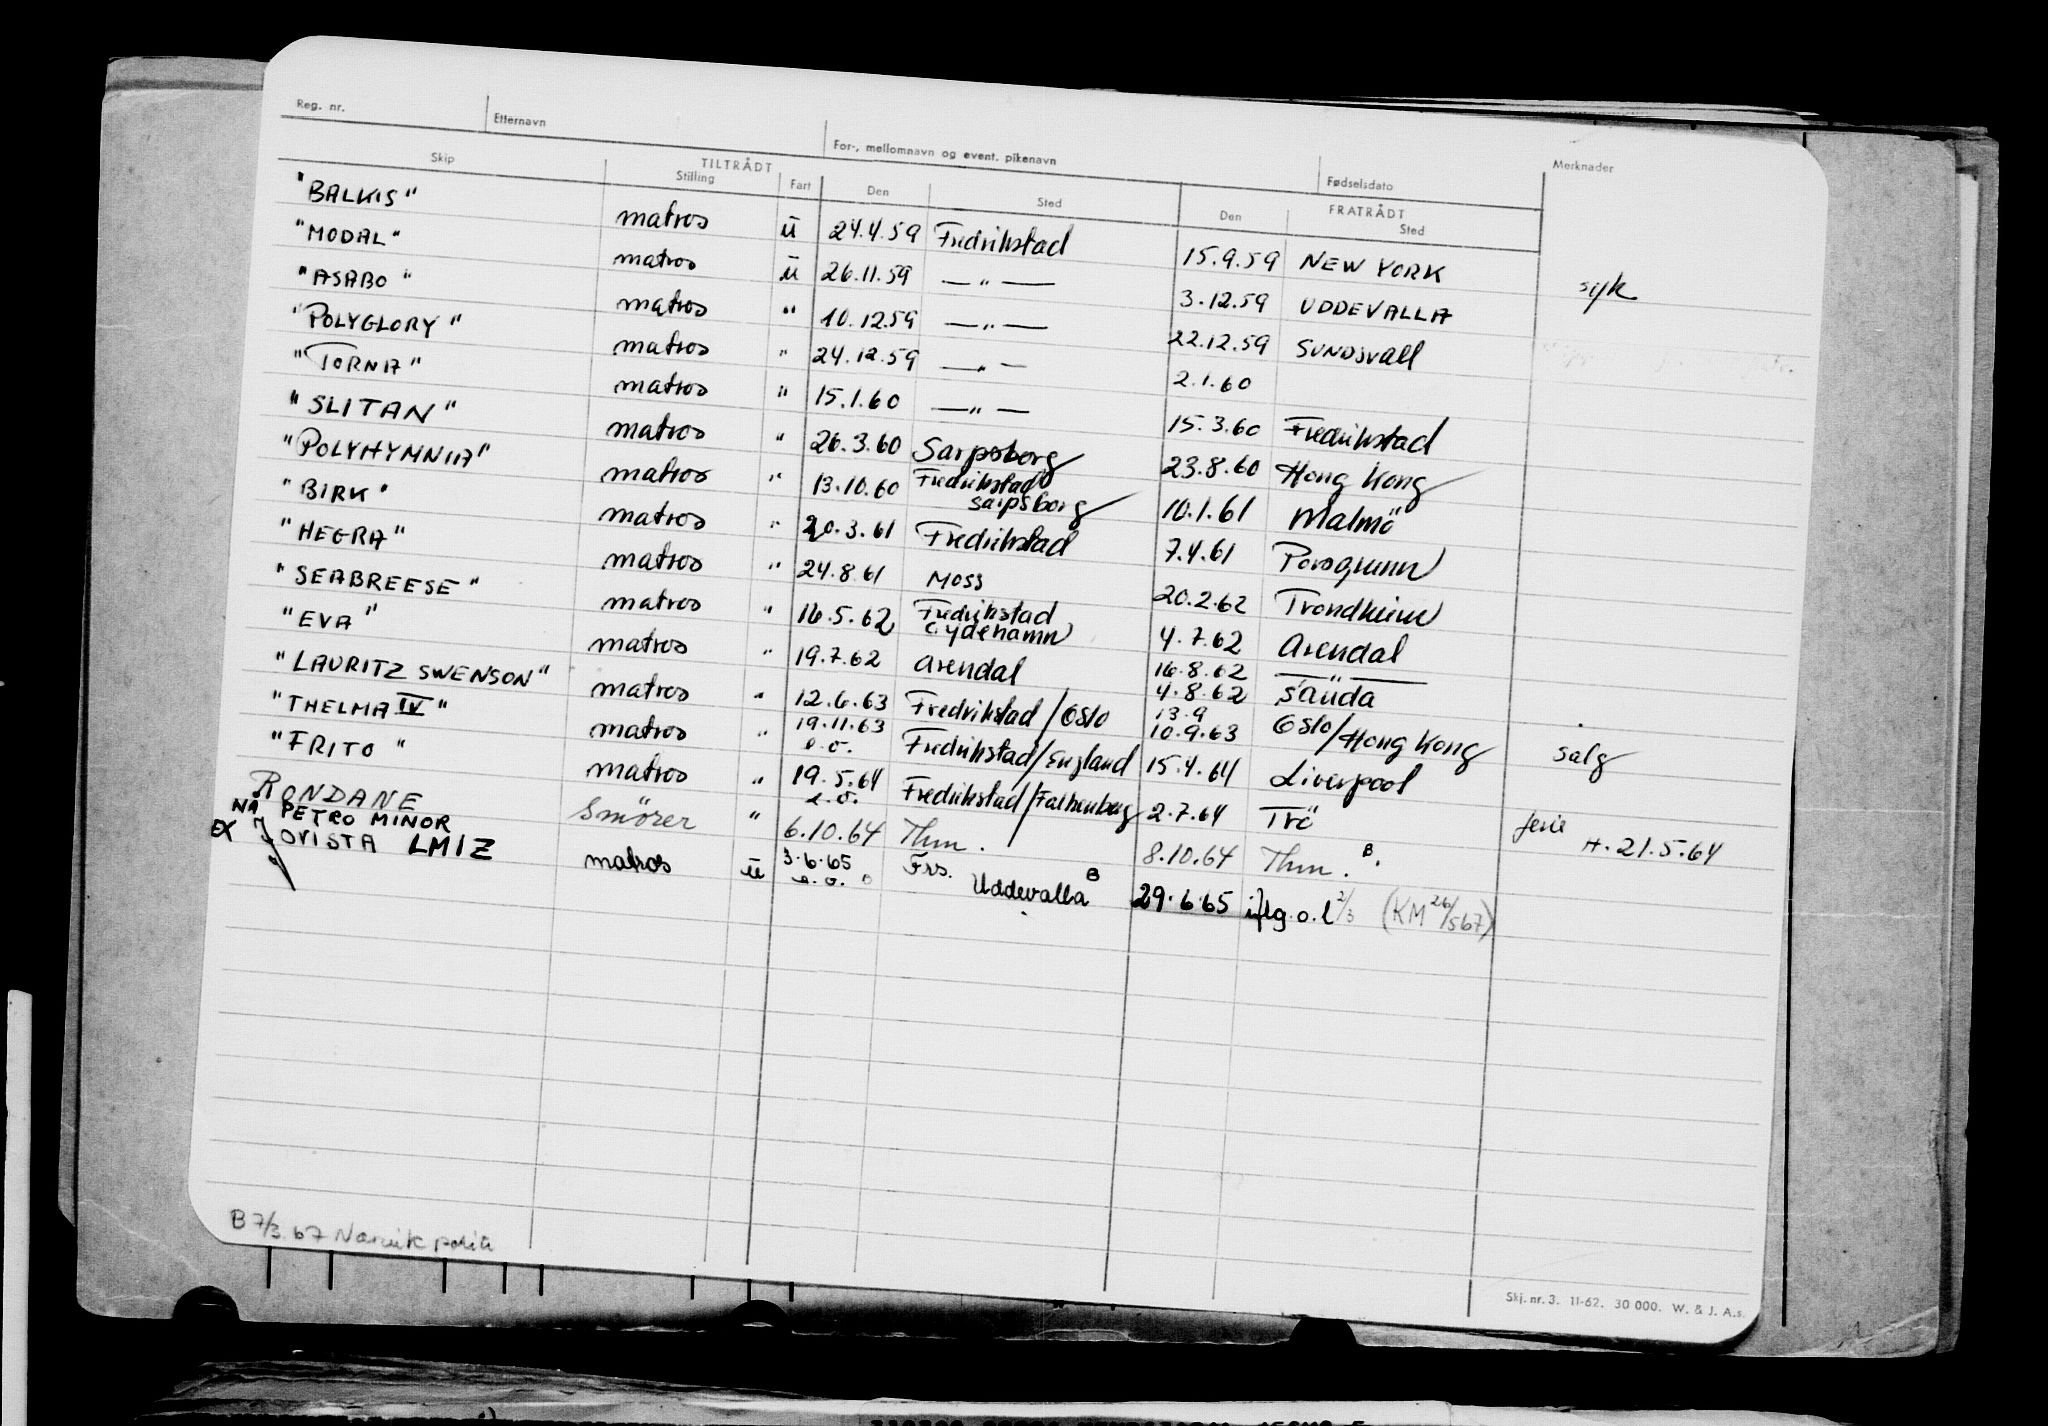 Reg. nr. Etternavn For-, mellomnavn og event. pikenavn Fødselsdato Merknader
Skip TILTRÅDT FRATRÅDT
Stilling Fart Den Sted Den Sted
"BALKIS" matros ü 24.4.59 Fredrikstad 15.9.59 NEW YORK syk
"MODAL" matros ü 26.11.59 —"— 3.12.59 UDDEVALLA
"ASABO" matros " 10.12.59 —"— 22.12.59 SUNDSVALL
"POLYGLORY" matros " 24.12.59 —"— 2.1.60
"TORNA" matros " 15.1.60 —"— 15.3.60 Fredrikstad
"SLITAN" matros " 26.3.60 Sarpsborg 23.8.60 Hong Kong
"POLYHYMNIA" matros " 13.10.60 Fredrikstad 10.1.61 Malmö
"BIRK" matros " 20.3.61 Sarpsborg Fredrikstad 7.4.61 Porsgrunn
"HEGRA" matros " 24.8.61 MOSS 20.2.62 Trondheim
"SEABREESE" matros " 16.5.62 Fredrikstad Eydehamn 4.7.62 Arendal
"EVA" matros " 19.7.62 Arendal 16.8.62 —"— 4.8.62 Sauda
"LAURITZ SWENSON" matros " 12.6.63 Fredrikstad/Oslo 13.9 10.9.63 Oslo/Hong Kong salg
"THELMA IV" matros " 19.11.63 e.o. Fredrikstad/England 15.4.64 Liverpool
"FRITO" matros " 19.5.64 e.o. Fredrikstad/Falkenberg 2.7.64 Trö ferie H. 21.5.64
RONDANE Smörer " 6.10.64 Thm. 8.10.64 Thm. B.
NÅ PETRO MINOR
EX JOVISTA LMIZ matros ü 3.6.65 e.o. Frs. Uddevalla B 29.6.65 iflg.o.l 2/3 (KM 26/567)
B 7/3.67 Narvik politi
Skj. nr. 3. 11-62. 30 000. W. & J. A.s.